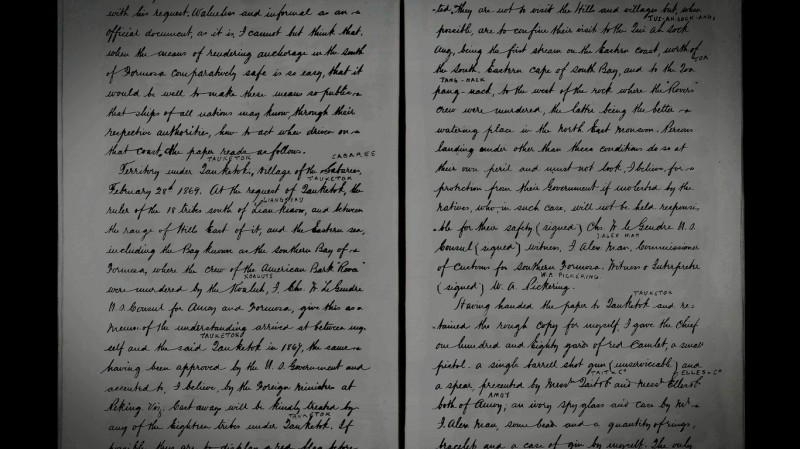 with his request. Valueless and informal as an
official document, as it is I cannot but think that,
when the means of rendering anchorage in the south
of Formosa comparatively safe is so easy, that it
would be well to make these means so public
that ships of all nations may know, through their
respective authorities, how to act when driven on
that coast, the paper reads as follows.
TAUKETOK SABAREE
Territory under Tauketok, Village of the Sabaree,
TAUKETOK
February 28th 1869. At the request of Tauketok, the
LIANGKIAU
ruler of the 18 tribes south of Liankiaw, and between
the range of Hill East of it, and the Eastern sea,
including the Bay known as the southern Bay of
Formosa, where the crew of the American Bark "Rova"
KOALUTS
were murdered by the Koalut, I. Chs. W Le Gendre
U.S. Consul for Amoy and Formosa, give this as a
Memn. of the understanding arrived at between my
TAUKETOK
self and the said Tauketok in 1867, the same
having been approved by the U.S. Government and
assented to, I believe, by the Foreign Ministers at
Peking Viz, Cast away will be kindly treated by
TAUKETOK
any of the Eighteen tribes under Tauketok. If
possible they are to display a red flag before
-ted. They are not to visit the Hills and villages but, when
TUI-AH-SOCK-ANG
possible, are to confine their visit to the Tui Ah Sock
Ang, being the first stream on the Eastern coast, north of
TOA
the South Eastern cape of south Bay, and to the Toa
PANG-NACK
pang-nack, to the west of the rock where the "Rovers"
crew were murdered, the latter being the better
watering place in the north East monsoon. Persons
landing under other than these conditions do so at
their own peril and must not look, I believe, for
protection from their Government if molested by the
natives, who in such case, will not be held responsi-
-ble for their safety (signed) Chs. W Le Gendre U.S.
J. ALEX MAN
Consul (signed) witness, J Alex Man, Commissioner
of Customs for Southern Formosa. Witness & Interpreter
W.A. PICKERING
(signed) W. A. Pickering.
TAUKETOK
Having handed the paper to Tauketok and re-
-tained the rough copy for myself, I gave the chief
one hundred and Eighty yards of red Camlet, a small
pistol - a single barrell shot gun (unserviceable) and
TAIT & Co ELLES & Co
a spear, presented by Messrs Tait & Co and Messrs Elles & Co
AMOY
both of Amoy; an ivory spy glass and case by Mr
J. Alex Man, some bead and a quantity of rings,
bracelets and a case of gin by myself. The only